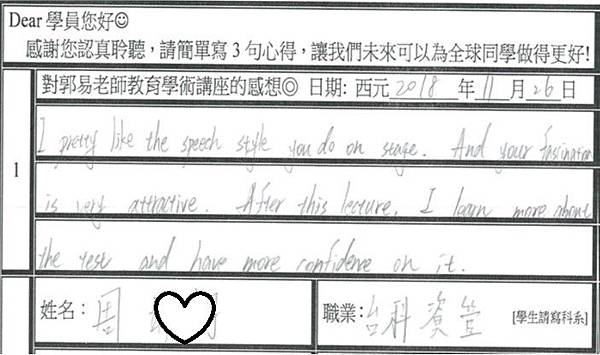 Dear 學員您好☺
感謝您認真聆聽，請簡單寫3句心得，讓我們未來可以為全球同學做得更好!
1
對郭易老師教育學術講座的感想◎ 日期: 西元 2018 年 11 月 26 日
I pretty like the speech style you do on stage. And your fasination
is very attractive. After this lecture, I learn more about
the test and have more confidence on it.
姓名： 周
職業: 台科 資管 [學生請寫科系]